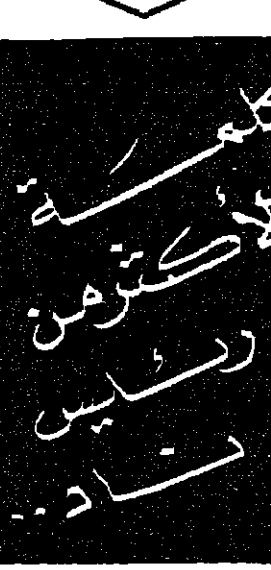 كلمة
لأكثر من
رئيس
نـاد..